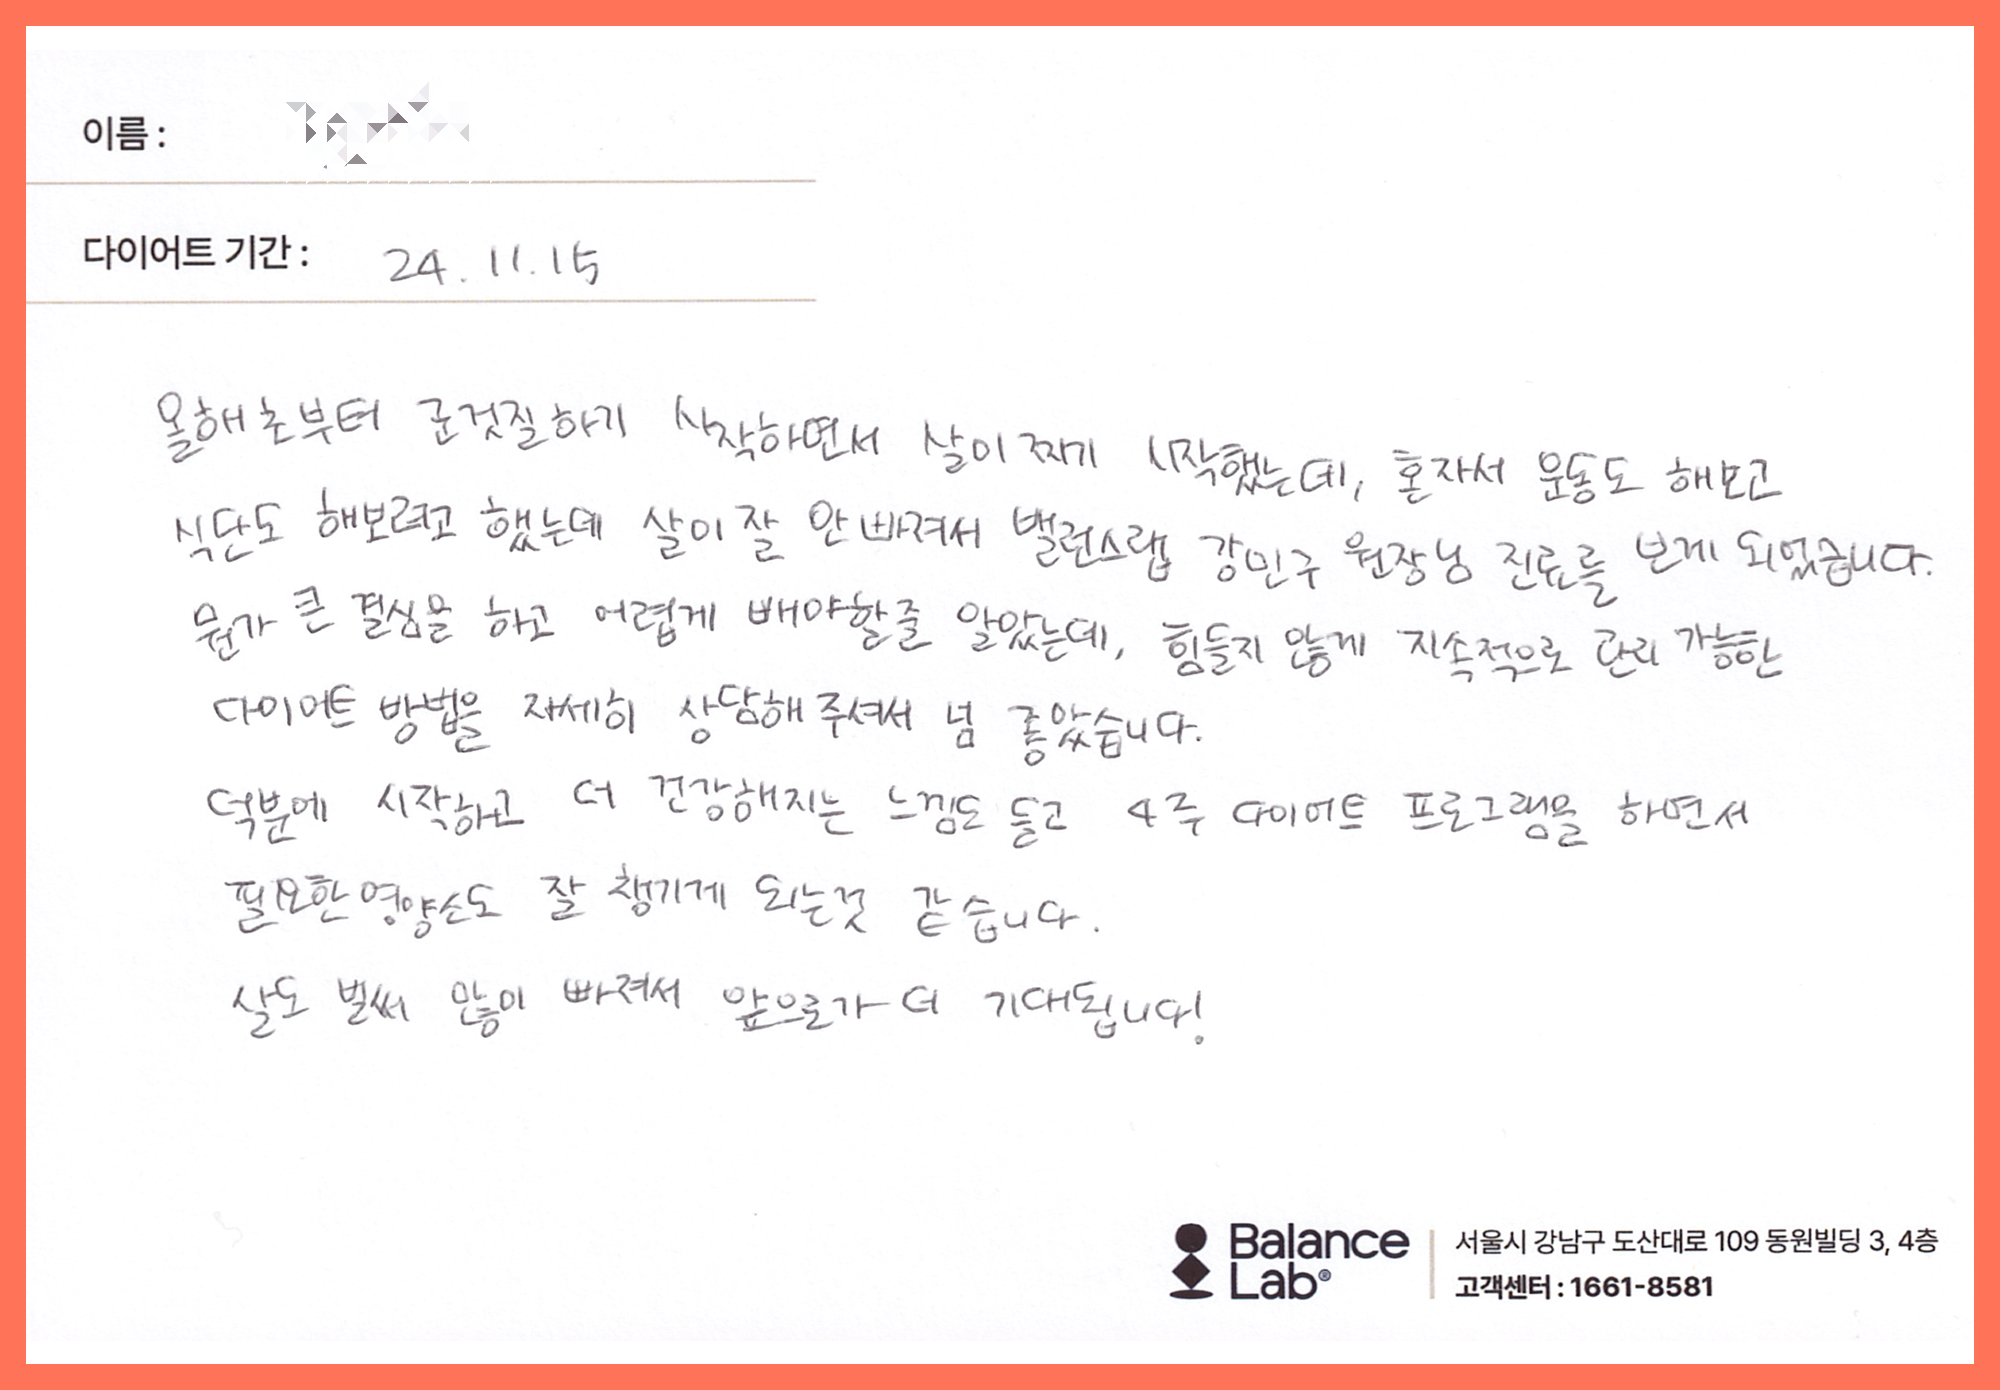 이름 :
다이어트 기간 : 24. 11. 15
올해초부터 군것질하기 시작하면서 살이 찌기 시작했는데, 혼자서 운동도 해보고
식단도 해보려고 했는데 살이 잘 안 빠져서 밸런스랩 강민구 원장님 진료를 보게 되었습니다.
뭔가 큰 결심을 하고 어렵게 빼야할줄 알았는데, 힘들지 않게 지속적으로 관리 가능한
다이어트 방법을 자세히 상담해주셔서 넘 좋았습니다.
덕분에 시작하고 더 건강해지는 느낌도 들고 4주 다이어트 프로그램을 하면서
필요한 영양소도 잘 챙기게 되는것 같습니다.
살도 벌써 많이 빠져서 앞으로가 더 기대됩니다!
Balance
Lab®
서울시 강남구 도산대로 109 동원빌딩 3, 4층
고객센터 : 1661-8581